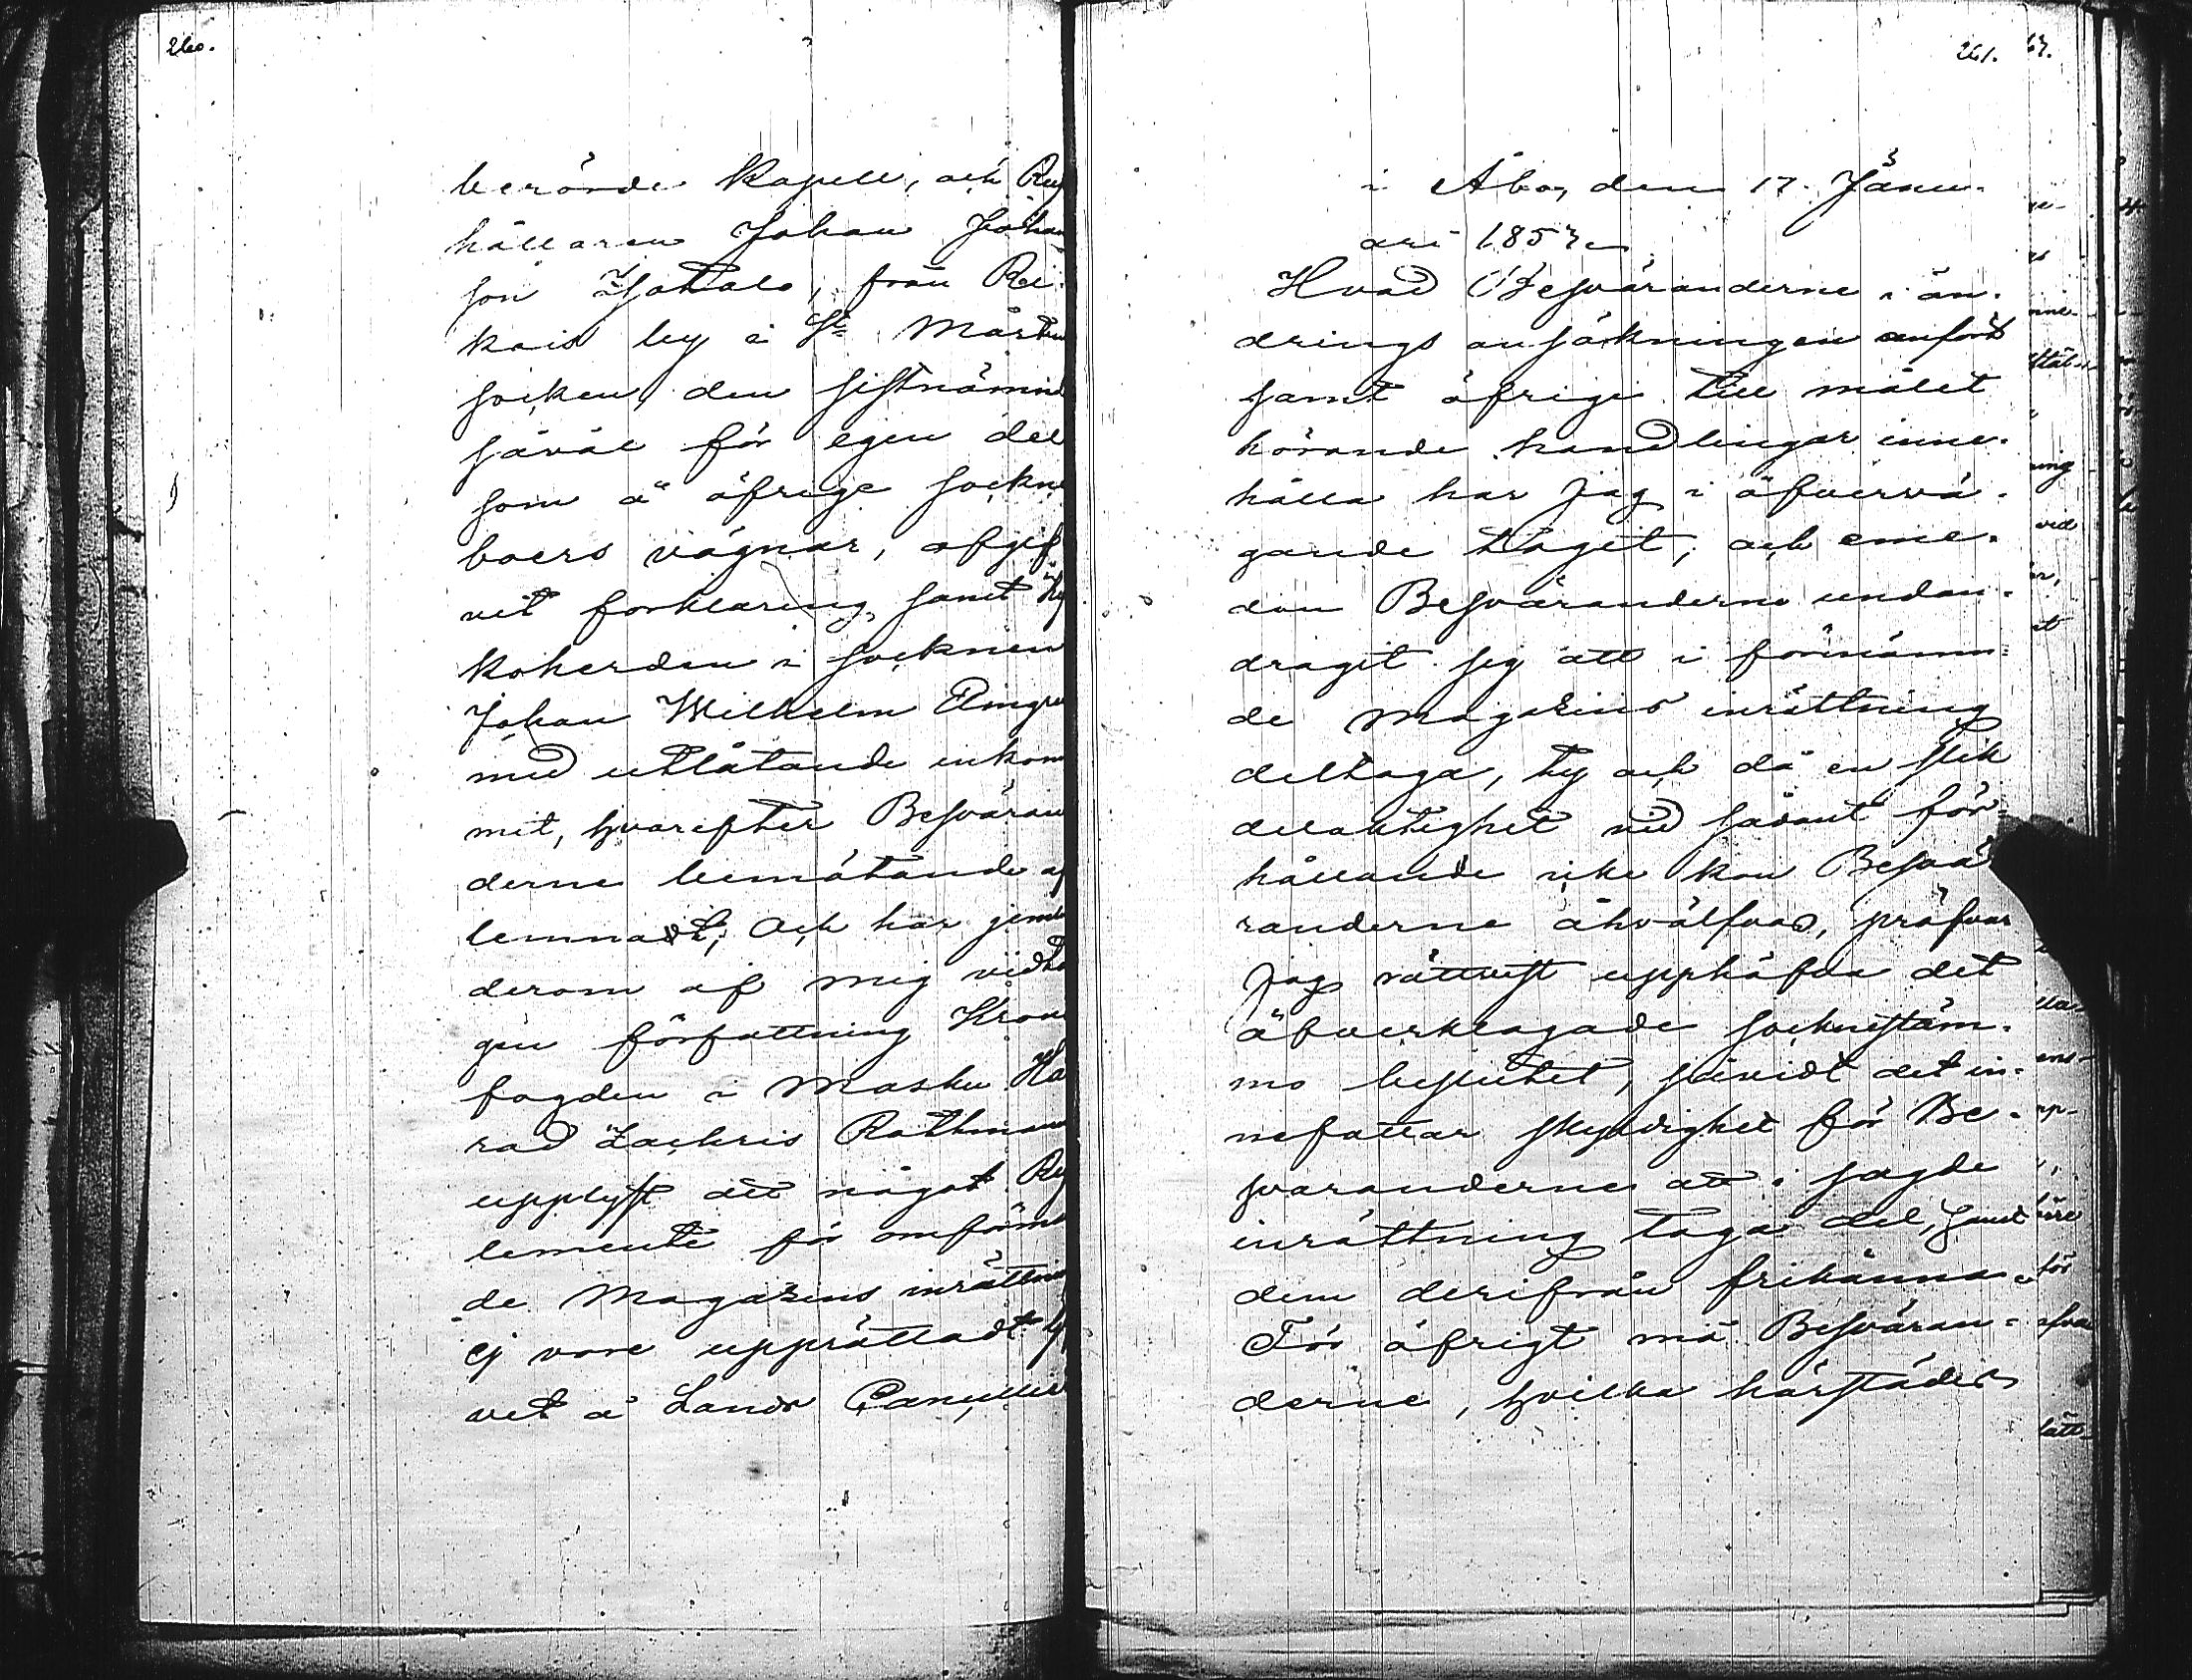 260.
berörde Kapell, och Rus
hållaren Johan Johan
son Yjatalo, från Rei
kais by i St Mårtens
socken, den sistnämnd
såväl för egen del
som å öfrige sockne
boers vägnar, afgif
vit förklaring, samt Ky
koherden i socknen
Johan Wilhelm Ringbo
med utlåtande inkom
mit, hvarefter Besväran
derne bemötande af
lemnadt; Och har jemte
derom af mig vidta
gen författning Krono
fogden i Masku Hä
rad Zachris Rothman
upplyst att något Reg
lemente för omförmä
de Magazins inrättning
ej vore upprättadt. Gif
vet å Lands Cancellie
261.
i Åbo, den 17. Janu-
ari 1857.
Hvad Besväranderne i än-
drings ansökningen anfört
samt öfrige till målet
hörande handlingar inne-
hålla har Jag i öfvervä-
gande tagit; och eme-
dan Besväranderne undan-
dragit sig att i förenämn-
de Magazins inrättning
deltaga, ty och då en slik
delaktighet vid sådant för-
hållande icke kan Besvä
randerne åhvälfvas, pröfvar
Jag rättvist upphäfva det
öfverklagade sockenstäm-
mo beslutet, såvidt det in-
nefattar skyldighet för Be-
svaranderne att i sagde
inrättning taga del, samt
dem derifrån frikänna.
För öfrigt må Besväran-
derne, hvilka härstädes